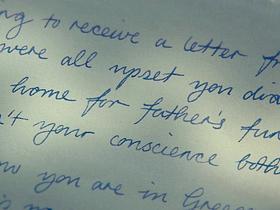 ng to receive a letter fr
were all upset you did
home for father's fun
't your conscience both
you are in Greece